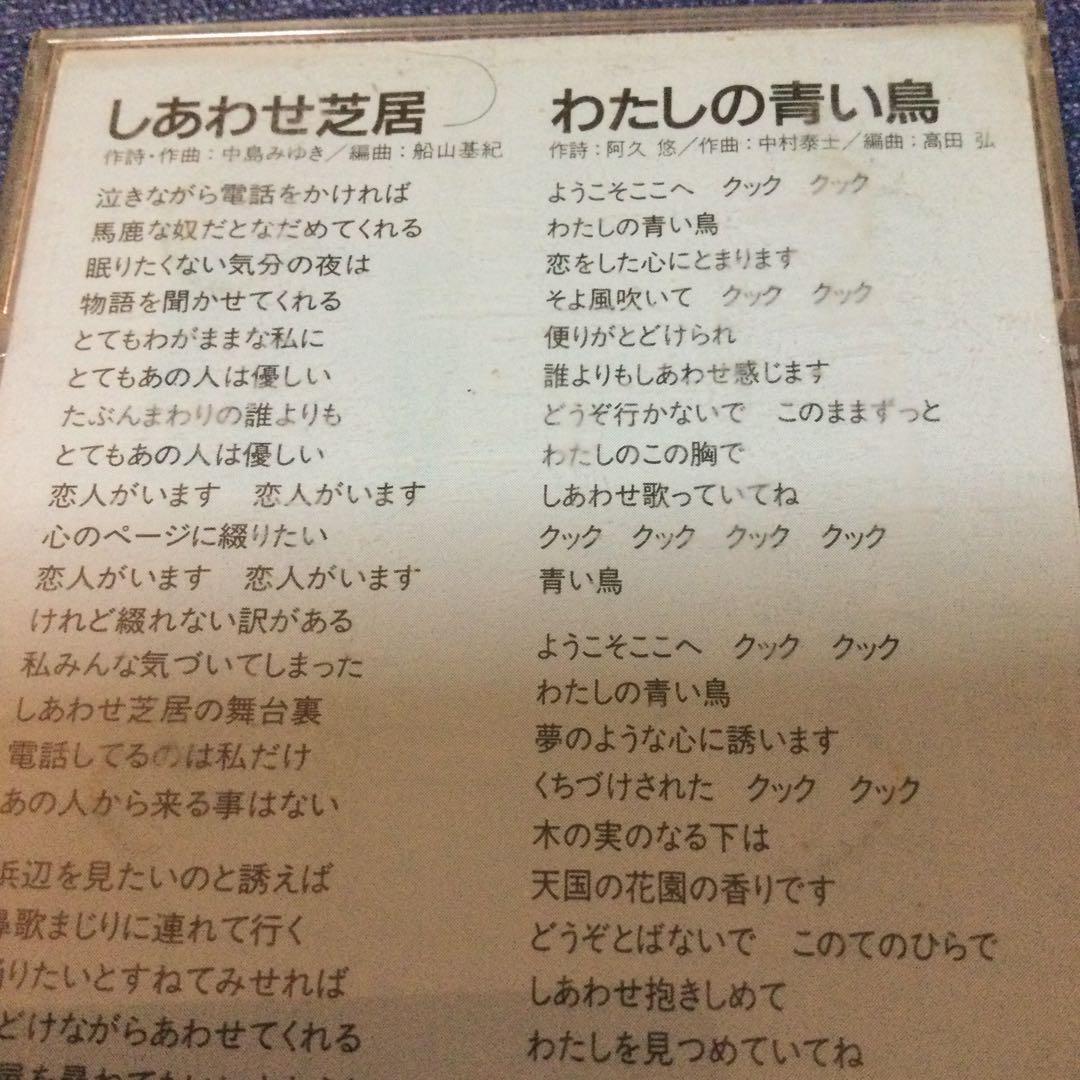 しあわせ芝居
作詩・作曲：中島みゆき／編曲：船山基紀
泣きながら電話をかければ
馬鹿な奴だとなだめてくれる
眠りたくない気分の夜は
物語を聞かせてくれる
とてもわがままな私に
とてもあの人は優しい
たぶんまわりの誰よりも
とてもあの人は優しい
恋人がいます　恋人がいます
心のページに綴りたい
恋人がいます　恋人がいます
けれど綴れない訳がある
私みんな気づいてしまった
しあわせ芝居の舞台裏
電話してるのは私だけ
あの人から来る事はない
浜辺を見たいのと誘えば
鼻歌まじりに連れて行く
りたいとすねてみせれば
どけながらあわせてくれる
わたしの青い鳥
作詩：阿久 悠／作曲：中村泰士／編曲：高田 弘
ようこそここへ　クック　クック
わたしの青い鳥
恋をした心にとまります
そよ風吹いて　クック　クック
便りがとどけられ
誰よりもしあわせ感じます
どうぞ行かないで　このままずっと
わたしのこの胸で
しあわせ歌っていてね
クック　クック　クック　クック
青い鳥
ようこそここへ　クック　クック
わたしの青い鳥
夢のような心に誘います
くちづけされた　クック　クック
木の実のなる下は
天国の花園の香りです
どうぞとばないで　このてのひらで
しあわせ抱きしめて
わたしを見つめていてね